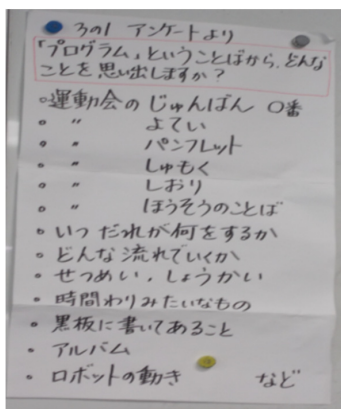 3の1 アンケートより
「プログラム」ということばから、どんな
ことを思い出しますか?
○運動会のじゅんばん ○番
○ 〃 よてい
○ 〃 パンフレット
○ 〃 しゅもく
○ 〃 しおり
○ 〃 ほうそうのことば
○いつだれが何をするか
○どんな流れでいくか
○せつめい、しょうかい
○時間わりみたいなもの
○黒板に書いてあること
○アルバム
○ロボットの動き など